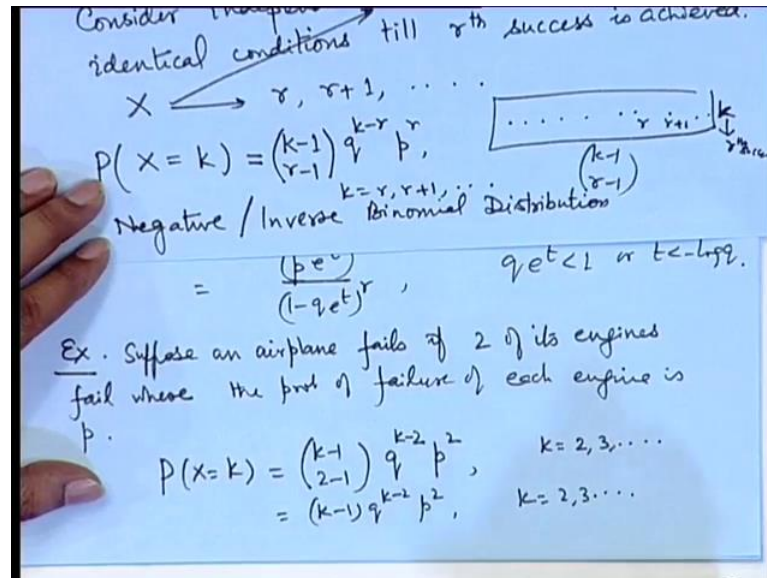 Consider
identical conditions till rth success is achieved.
X → r, r+1, . . . .
. . . . . . . . r r+1 . . k
↓
rth
P(X=k) = (k-1 r-1) q^{k-r} p^r, (k-1 r-1)
k=r, r+1, . .
Negative / Inverse Binomial Distribution
= (pe^t) / (1-qe^t)^r , qe^t<1 or t<-log q.
Ex. Suppose an airplane fails if 2 of its engines
fail where the prob of failure of each engine is
p.
P(X=k) = (k-1 2-1) q^{k-2} p^2, k= 2, 3, . . . .
= (k-1) q^{k-2} p^2, k= 2, 3 . . . .